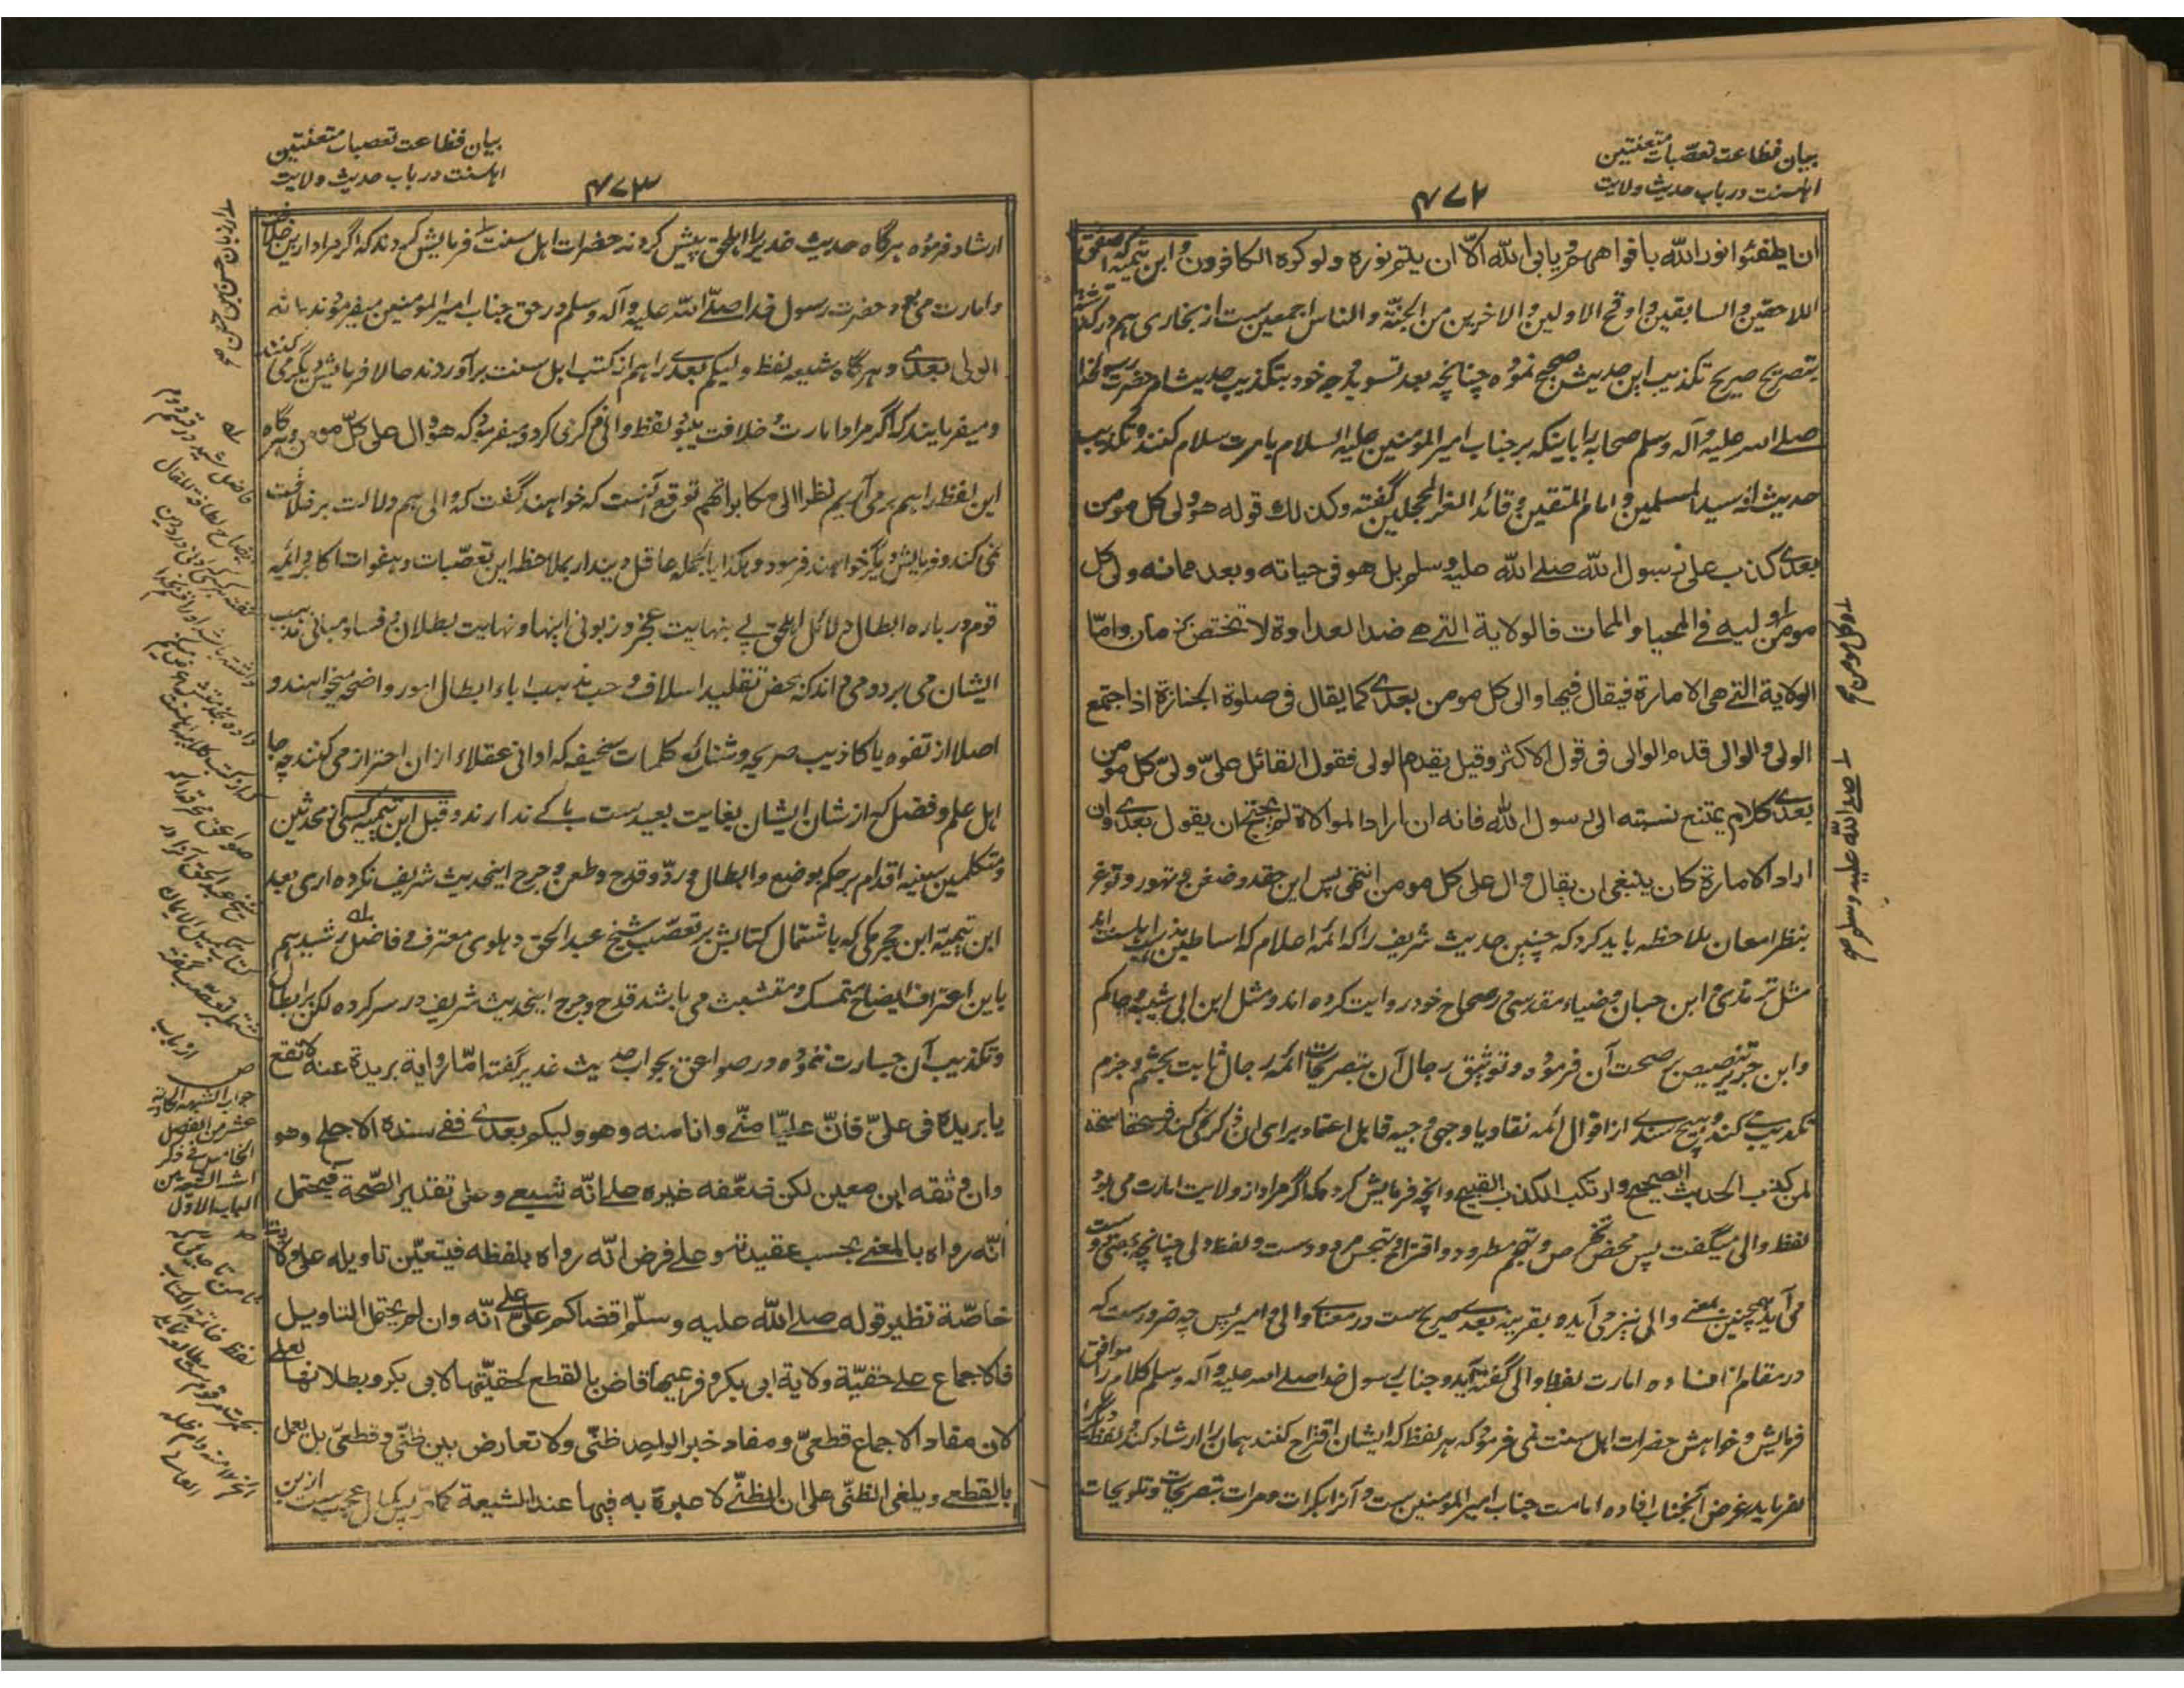 بیان فظاعت تعصّبات متعنتین
اہلسنت در باب حدیث ولایت
۴۷۲
ان یطفئوا نور الله بافواههم و یابی الله الّا ان یتم نوره ولو کره الکافرون و ابن تیمیه که
اللاحقین و السابقین و اوقح الاولین و الاخرین من الجنّة و الناس اجمعین ست از بخاری هم در
بتصریح صریح تکذیب این حدیث صحیح نموده چنانچه بعد تسوید وجه خود بتکذیب حدیث امر حضرت رسول خدا
صلے الله علیه و آله وسلم صحابه را باینکه بر جناب امیر المومنین علیه السلام بامرت سلام کنند و تکذیب
حدیث انه سید المسلمین و امام المتقین و قائد الغر المحجلین گفته وکذلك قوله هو ولی کل مومن
بعدی کذب علی رسول الله صلے الله علیه وسلم بل هو فی حیاته وبعد مماته ولی کل
مومن و لیه فی المحیا و الممات فالولایة التے هے ضد العداوة لا تختص بزمان وامّا
الولایة التے هی الامارة فیقال فیها والی کل مومن بعدی کما یقال فی صلوة الجنازة اذا اجتمع
الولی و الوالی قدم الوالی فی قول الاکثر وقیل یقدم الولی فقول القائل علیّ ولیّ کل مومن
بعدی کلام یمتنع نسبته الی رسول الله فانه ان اراد الموالاة لم یحتج ان یقول بعدی وان
اراد الامارة کان ینبغی ان یقال وال علی کل مومن انتهی پس این حقد و ضغن و تهور و توغر
بنظر امعان ملاحظه باید کرد که چنین حدیث شریف را که ائمه اعلام که اساطین مذهب اهلسنت اند
مثل ترمذی و ابن حبان و ضیاء مقدسی در صحاح خود روایت کرده اند و مثل ابن ابی شیبه و حاکم
وابن جریر تنصیص بر صحت آن فرموده و توثیق رجال آن بتصریحات ائمه رجال ثابت بحتم و جزم
تکذیب می کند و هیچ سندے از اقوال ائمه نقاد یا وجهی وجیه قابل اعتماد برای ان ذکر نمی کند فسحقا سحقا
لمن کذب الحدیث الصحیح و ارتکب الکذب القبیح و انچه فرمایش کرده که اگر مراد از ولایت امارت می بود
لفظ والی میگفت پس محض تخرص و تهجم مطرود و اقتراح و تهجس مردودست و لفظ ولی چنانچه بمعنی
می آید همچنین بمعنے والی نیز می آید و بقرینه بعدے صریح ست در معناے والی و امیر پس چه ضرورست که
در مقام افاده امارت لفظ والی گفته آید و جناب رسول خدا صلے الله علیه و آله وسلم کلام را موافق
فرمایش و خواهش حضرات اهل سنت نمی فرمود که هر لفظ که ایشان اقتراح کنند همان را ارشاد کند
نفرماید غرض آنجناب افاده امامت جناب امیر المومنین ست و آنرا بکرات و مرات بتصریحات و تلویحات
بیان فظاعت تعصبات متعنتین
اہلسنت در باب حدیث ولایت
۴۷۳
ارشاد فرموده هرگاه حدیث غدیر را اهل حق پیش کردند حضرات اهل سنت فرمایش کردند که اگر مراد ازین خلافت
و امارت می بود حضرت رسول خدا صلے الله علیه و آله وسلم در حق جناب امیر المومنین میفرمودند بانه
الولی بعدی و هرگاه شیعه لفظ ولیکم بعدی را هم از کتب اهل سنت برآوردند حالا فرمایش دیگر می کنند
و میفرمایند که اگر مراد امارت و خلافت میبود لفظ والی ذکر می کرد و میفرمود که هو وال علی کلّ مومن و هرگاه
این لفظ را هم برمی آریم نظرا الی مکابراتهم توقع آنست که خواهند گفت که والی هم دلالت بر خلافت
نمی کند و فرمایش دیگر خواهند فرمود و هکذا بالجمله عاقل دیندار بملاحظه این تعصّبات و هفوات اکابر ائمه
قوم در باره ابطال دلائل اهل حق پے بنهایت عجز و زبونی اینها و نهایت بطلان و فساد مبانی مذهب
ایشان می برد و می داند که محض تقلید اسلاف و حب مذهب اباء ابطال امور واضحه میخواهند و
اصلا از تفوه باکاذیب صریحه و شنائع کلمات سخیفه که ادانی عقلاء ازان احتراز می کنند چه جا
اهل علم و فضل که از شان ایشان بغایت بعیدست باکے ندارند و قبل ابن تیمیه کسی از محدثین
و متکلمین سنیه اقدام بر حکم بوضع و ابطال و ردّ و قدح و طعن و جرح اینحدیث شریف نکرده اری بعد
ابن تیمیّه ابن حجر مکی که باشتمال کتابش بر تعصّب شیخ عبد الحق دهلوی معترف و فاضل رشید هم
باین اعتراف ایضاح متمسک و متشبث می باشد قدح و جرح اینحدیث شریف در سر کرده لکن بر ابطال
و تکذیب آن جسارت ننموده در صواعق بجواب حدیث غدیر گفته امّا روایة بریدة عنه لا تقع
یا بریدة فی علیّ فانّ علیّا منّے وانا منه وهو ولیکم بعدی ففے سنده الاجلح وهو
وان وثقه ابن معین لکن ضعّفه غیره علے انّه شیعے و علی تقدیر الصّحة فیحتمل
انّه رواه بالمعنے بحسب عقیدته و علے فرض انّه رواه بلفظه فیتعیّن تاویله علی ولایة
خاصّة نظیر قوله صلے الله علیه وسلّم اقضاکم علیّ علی انّه وان لم یحتمل التاویل
فالاجماع علے حقیّة ولایة ابی بکر و فرعیها قاض بالقطع لحقیّتها لابی بکر و بطلانها لعلی
لان مفاد الاجماع قطعیّ و مفاد خبر الواحد ظنّی ولا تعارض بین ظنّی و قطعیّ بل یعمل
بالقطعے ویلغی الظنّی علی ان الظنّے لا عبرة به فیها عند الشیعة کما مرّ پس کمال عجب ست ازین
جواب الشبهه الحادیة
عشر من الفصل
الخامس فے ذکر
الباب الاوّل